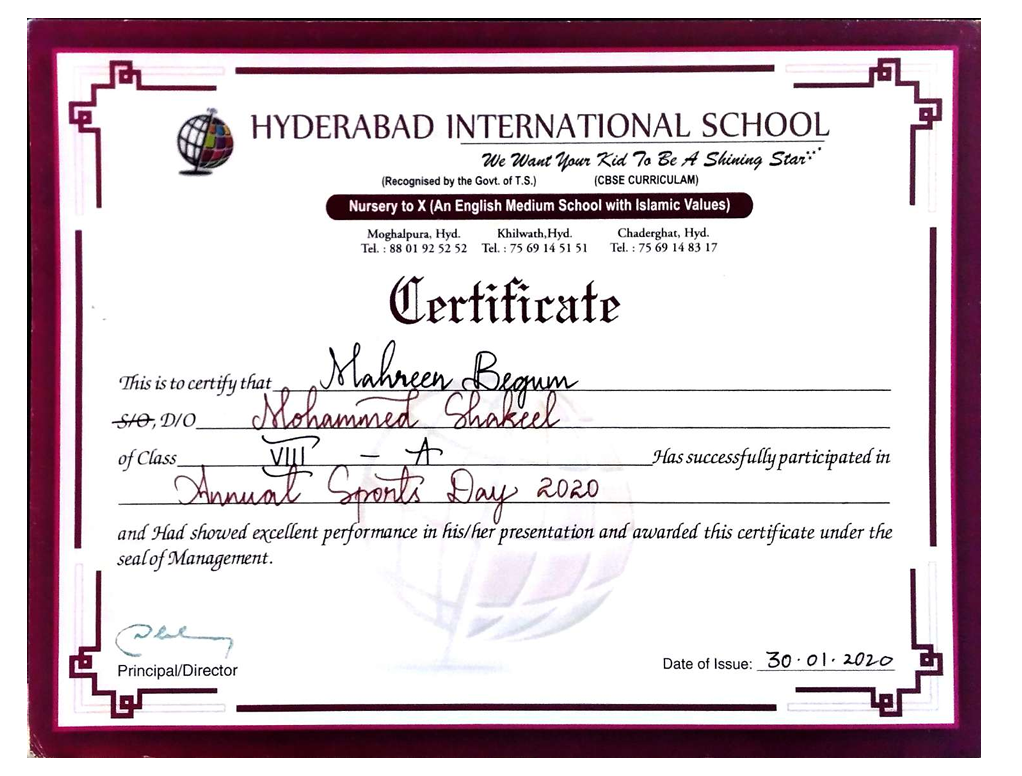 HYDERABAD INTERNATIONAL SCHOOL
We Want Your Kid To Be A Shining Star
(Recognised by the Govt. of T.S.) (CBSE CURRICULAM)
Nursery to X (An English Medium School with Islamic Values)
Moghalpura, Hyd. Khilwath,Hyd. Chaderghat, Hyd.
Tel. : 88 01 92 52 52 Tel. : 75 69 14 51 51 Tel. : 75 69 14 83 17
Certificate
This is to certify that Mahreen Begum
S/O, D/O Mohammed Shakeel
of Class VIII - A Has successfully participated in
Annual Sports Day 2020
and Had showed excellent performance in his/her presentation and awarded this certificate under the
seal of Management.
Principal/Director
Date of Issue: 30.01.2020